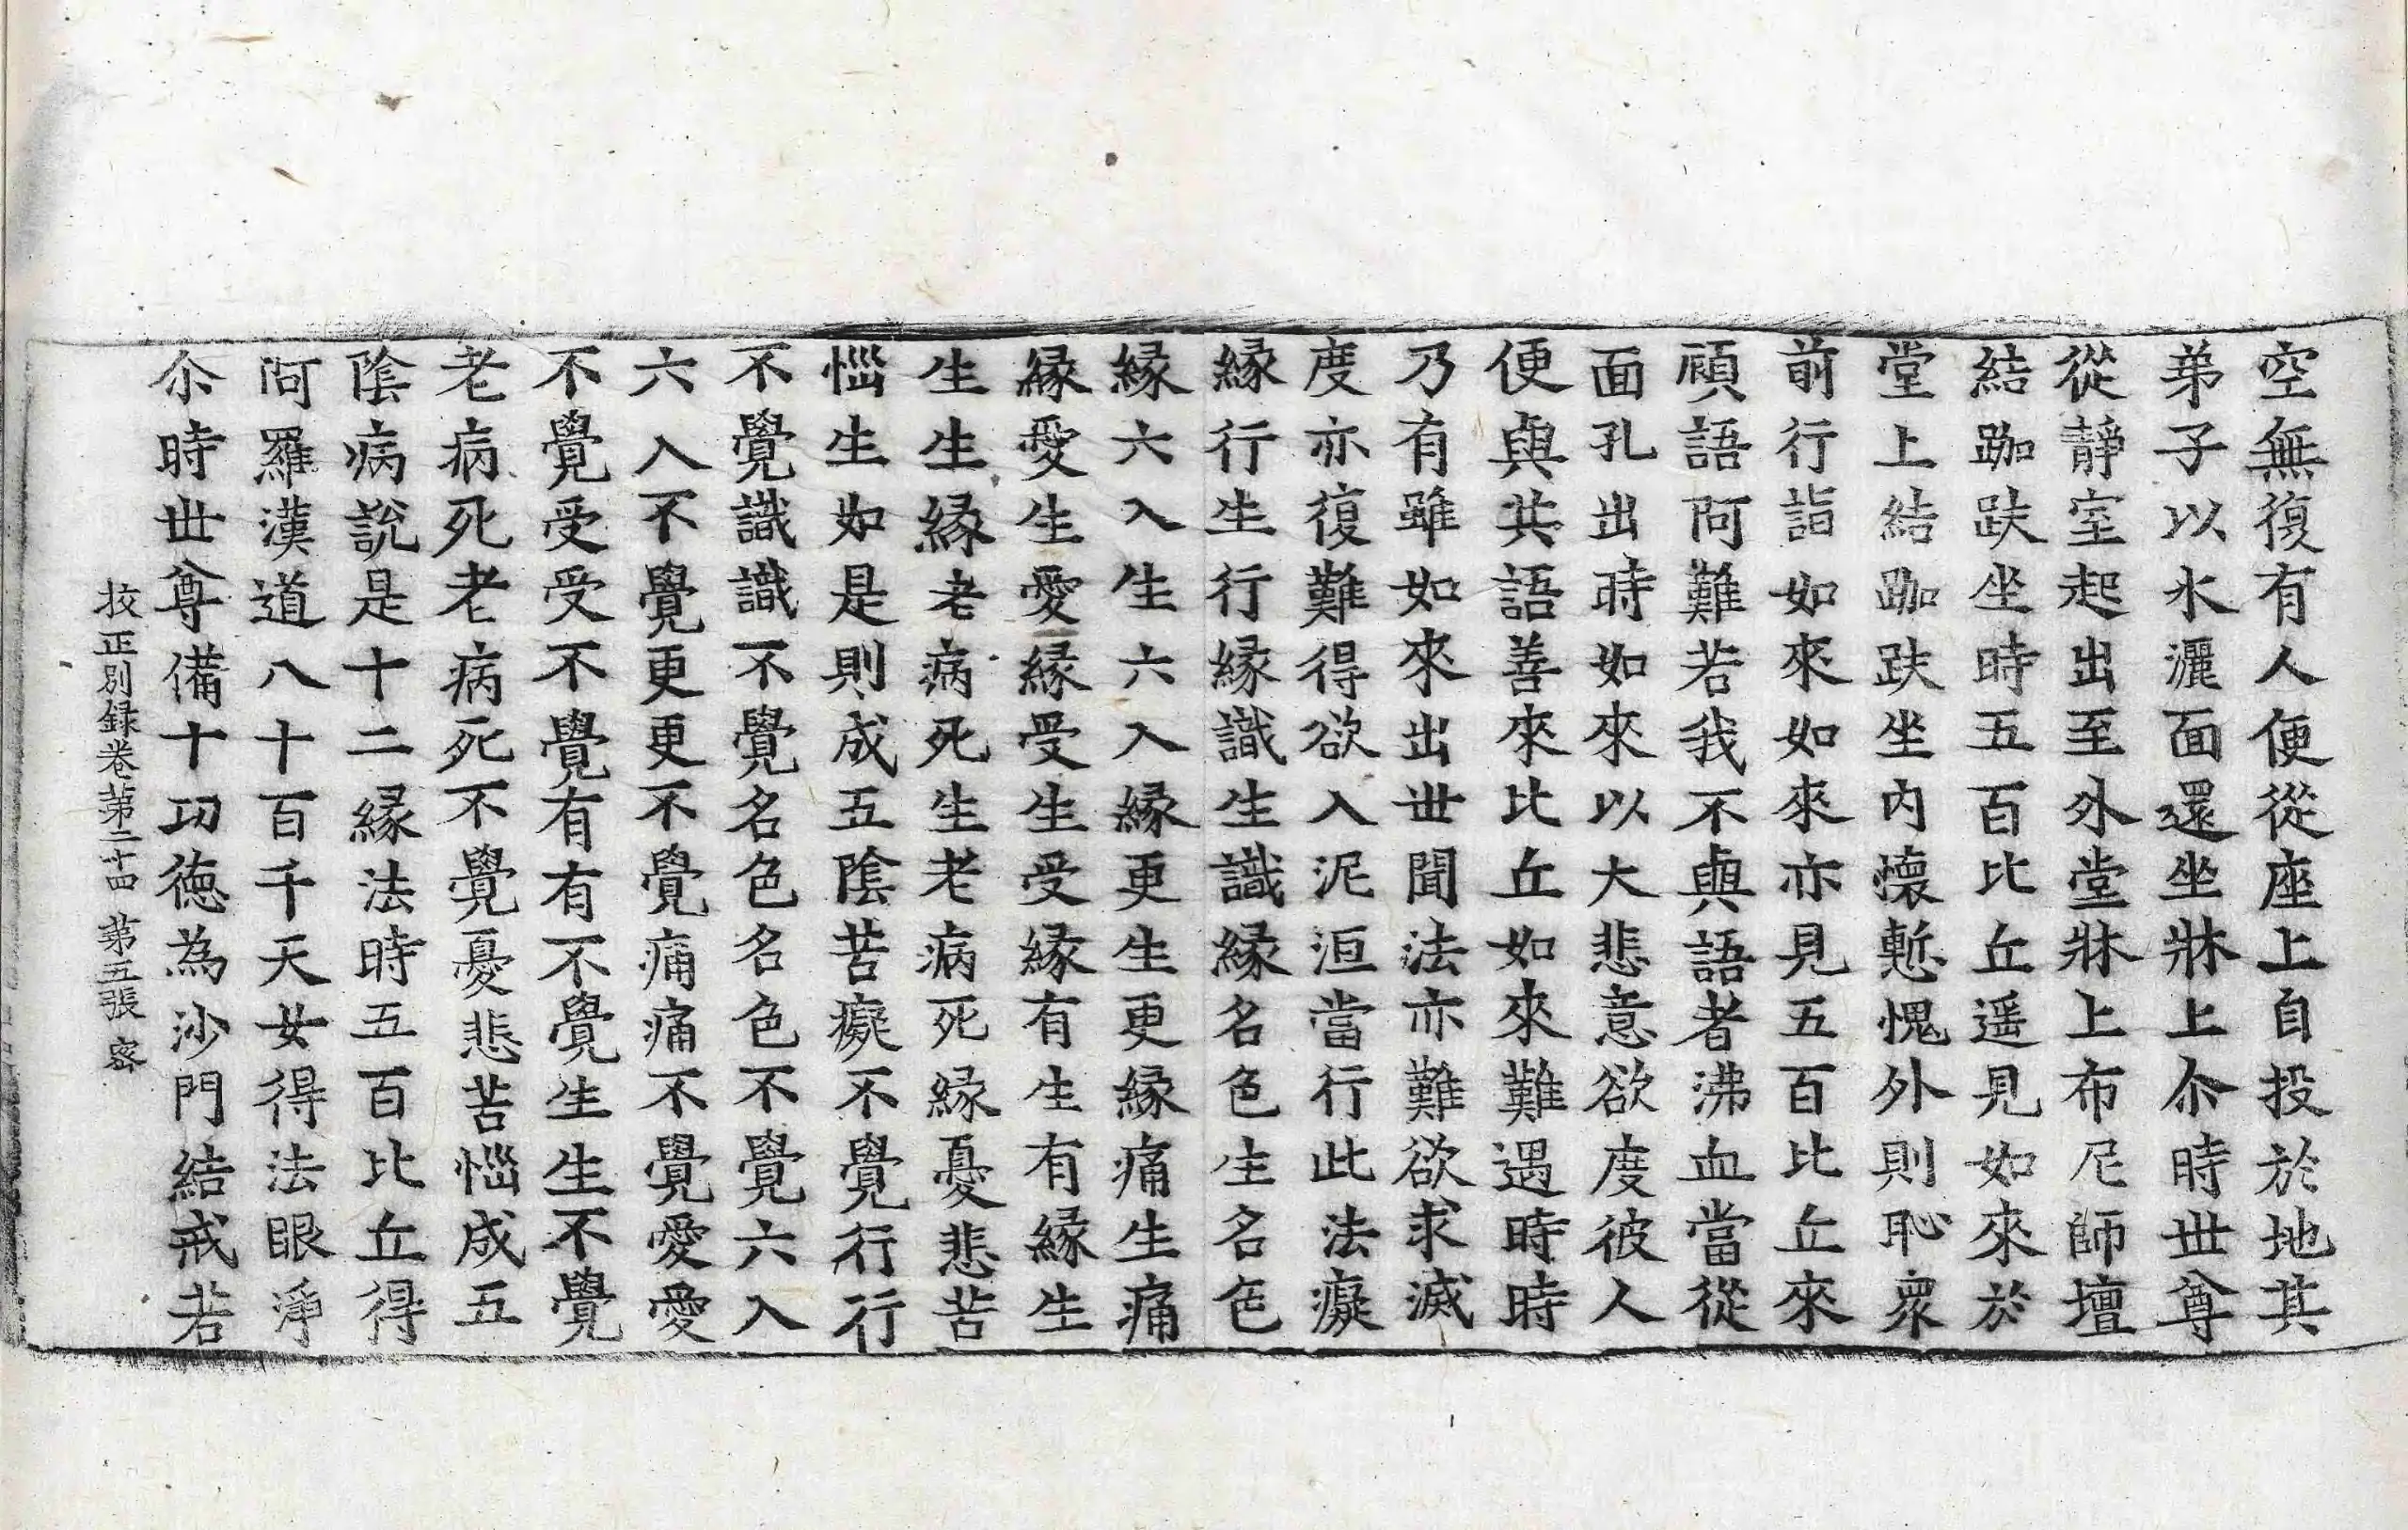 空無復有人便從座上自投於地其
弟子以水灑面還坐牀上尒時世尊
從靜室起出至外堂牀上布尼師壇
結跏趺坐時五百比丘遥見如來於
堂上結跏趺坐內懷慙愧外則恥衆
前行詣如來如來亦見五百比丘來
頋語阿難若我不與語者沸血當從
面孔出時如來以大悲意欲度彼人
便與共語善來比丘如來難遇時時
乃有雖如來出世聞法亦難欲求滅
度亦復難得欲入泥洹當行此法癡
緣行生行緣識生識緣名色生名色
緣六入生六入緣更生更緣痛生痛
緣愛生愛緣受生受緣有生有緣生
生生緣老病死生老病死緣憂悲苦
惱生如是則成五陰苦癡不覺行行
不覺識識不覺名色名色不覺六入
六入不覺更更不覺痛痛不覺愛愛
不覺受受不覺有有不覺生生不覺
老病死老病死不覺憂悲苦惱成五
陰病說是十二緣法時五百比丘得
阿羅漢道八十百千天女得法眼淨
尒時世尊備十功德為沙門結戒若
挍正別録卷第二十四 第五張 密